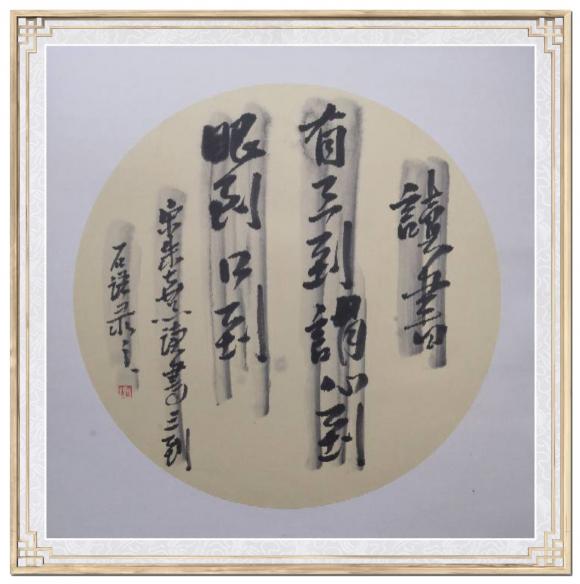 讀書
有三到謂心到
眼到口到
宋朱熹读書三到
石語录之